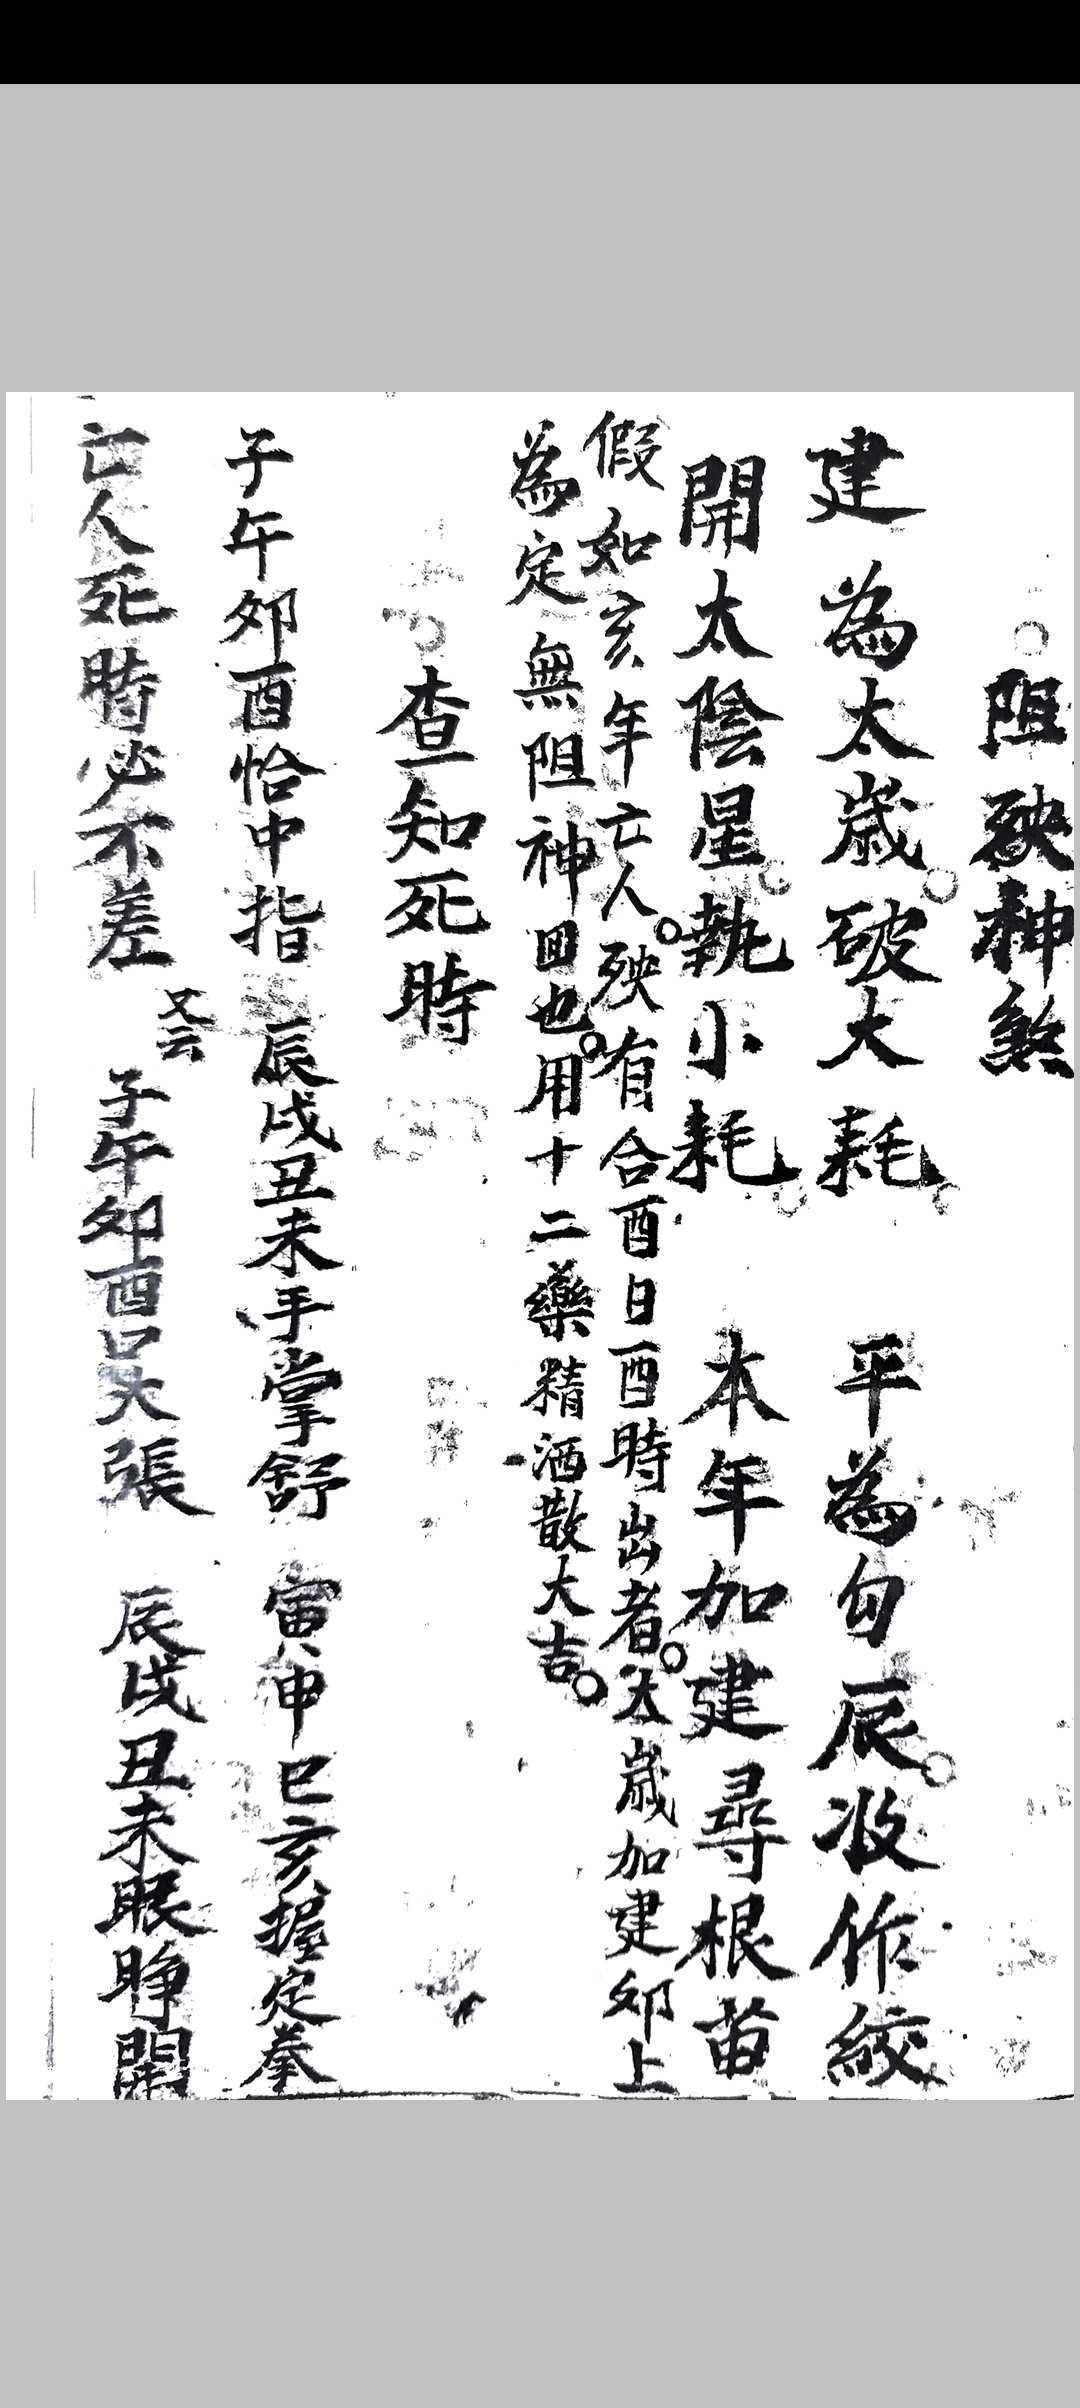 阻殃神煞
建為太歲破大耗　平為勾辰收作絞
開太陰星執小耗　本年加建尋根苗
假如亥年亡人殃有合酉日酉時出者太歲加建卯上
為定無阻神回也用十二藥精洒散大吉
查知死時
子午卯酉恰中指　辰戌丑未手掌舒　寅申巳亥握定拳
亡人死時必不差　又云　子午卯酉口大張　辰戌丑未眼睁開